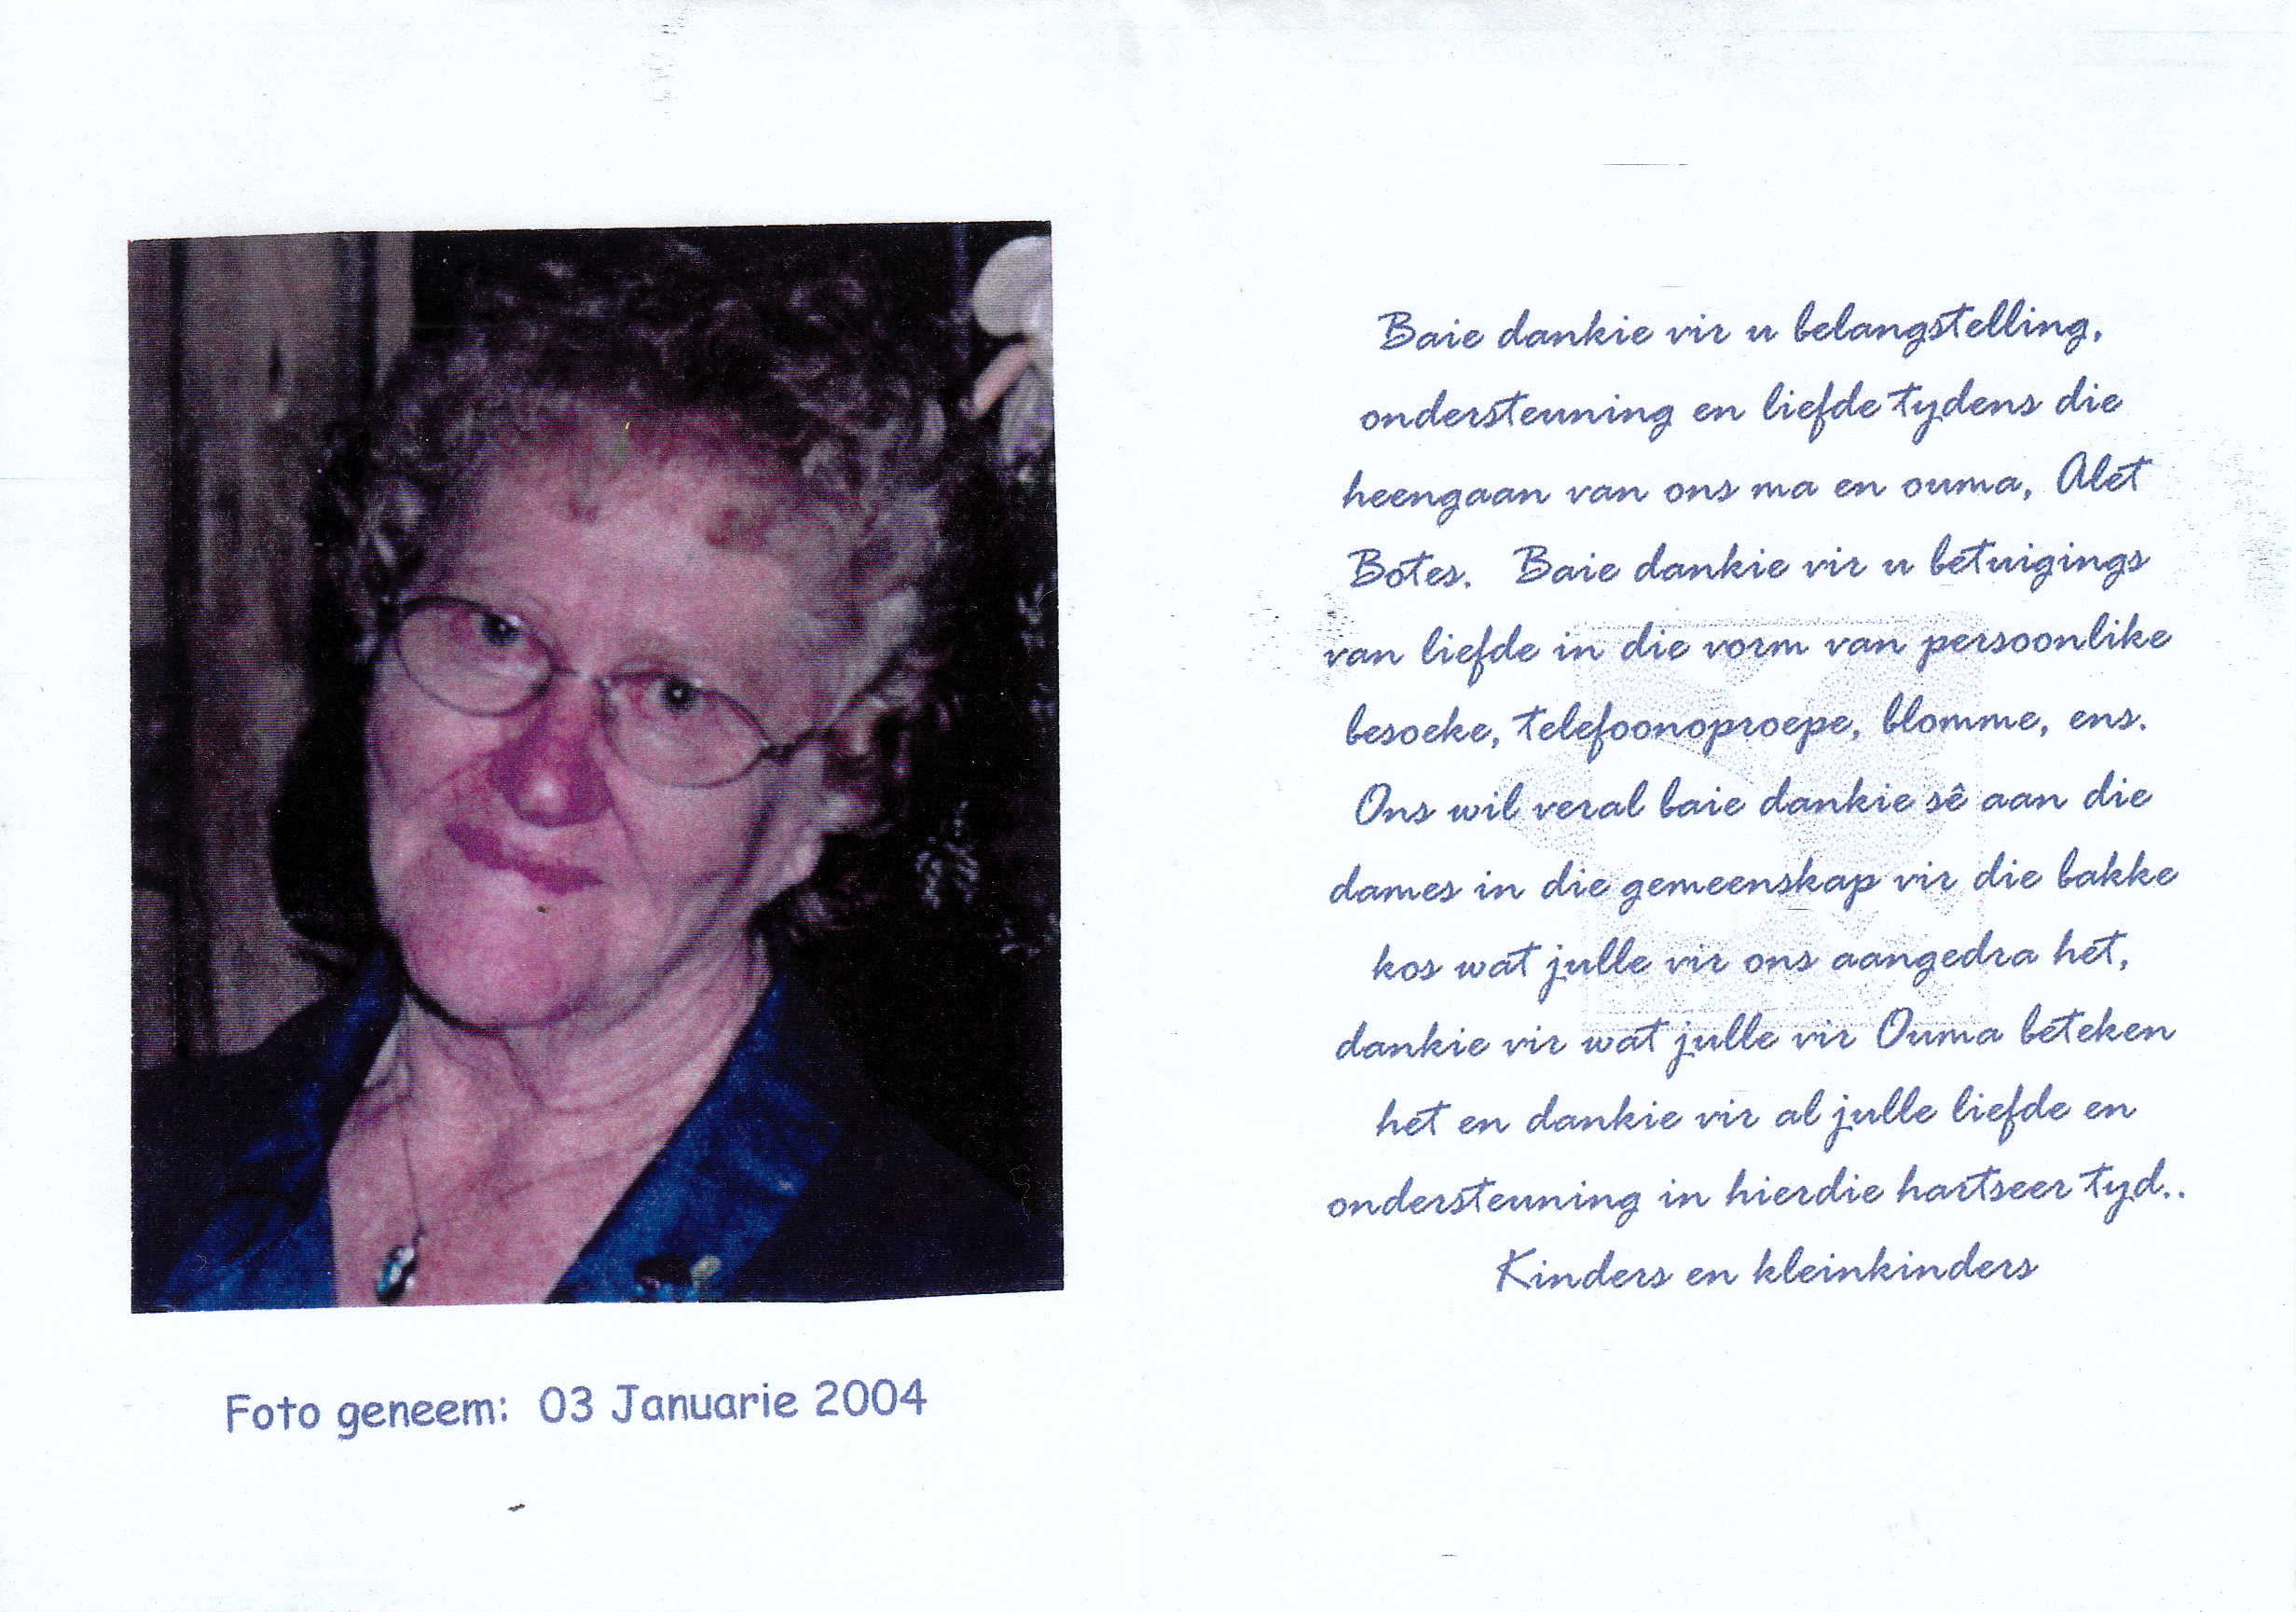 Foto geneem: 03 Januarie 2004
Baie dankie vir u belangstelling,
ondersteuning en liefde tydens die
heengaan van ons ma en ouma, Alet
Botes. Baie dankie vir u betuigings
van liefde in die vorm van persoonlike
besoeke, telefoonoproepe, blomme, ens.
Ons wil veral baie dankie sê aan die
dames in die gemeenskap vir die bakke
kos wat julle vir ons aangedra het,
dankie vir wat julle vir Ouma beteken
het en dankie vir al julle liefde en
ondersteuning in hierdie hartseer tyd..
Kinders en kleinkinders